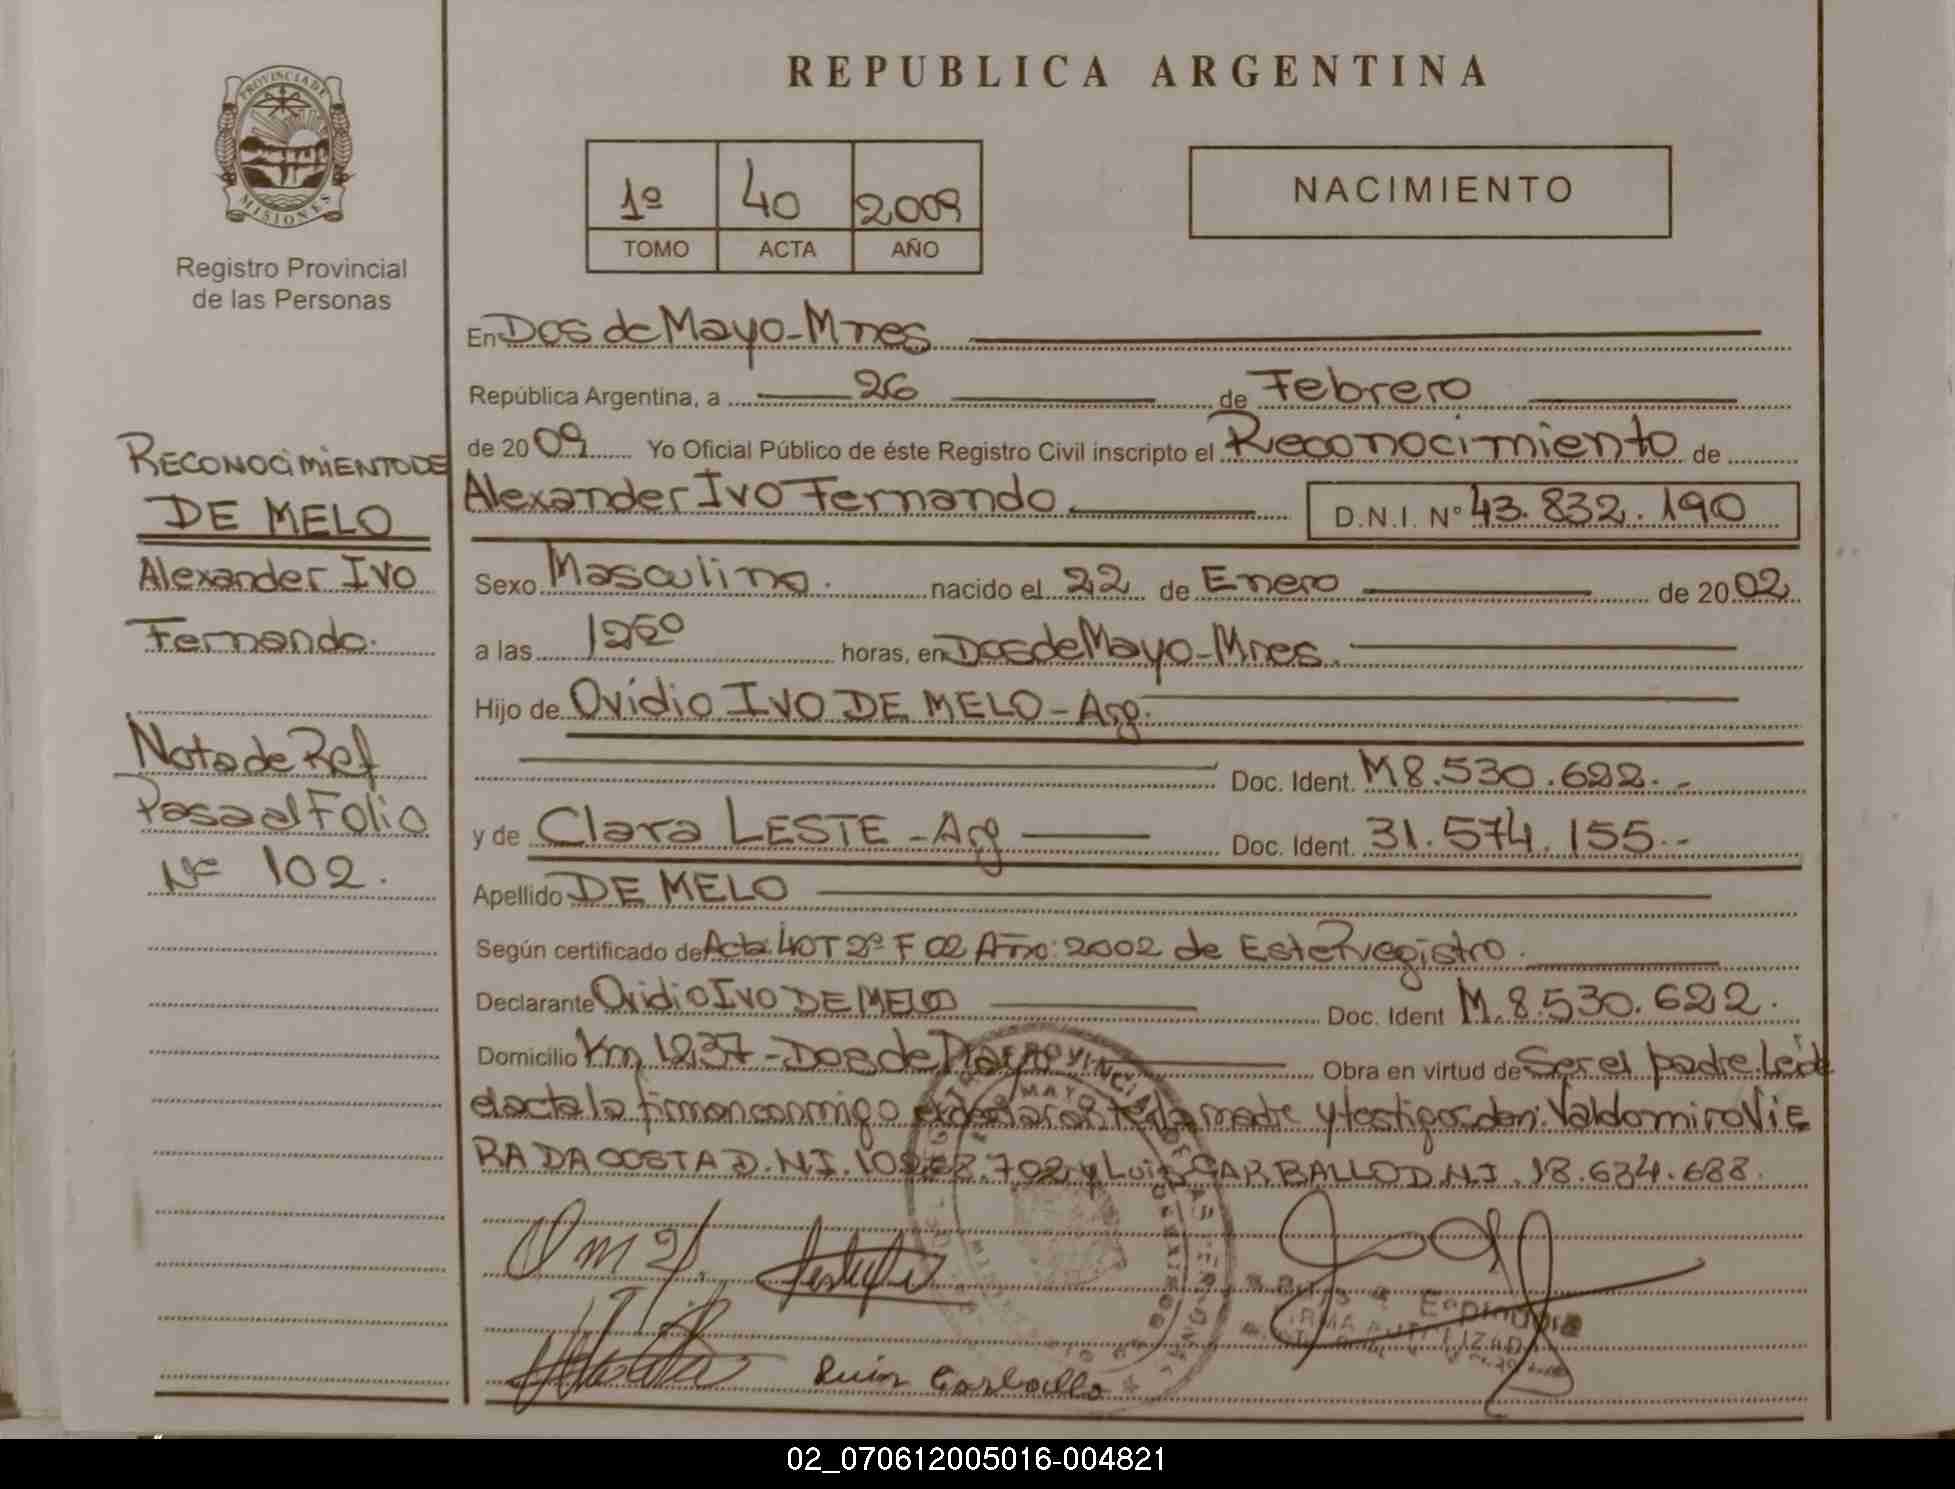 PROVINCIA DE
MISIONES
Registro Provincial
de las Personas
RECONOCIMIENTO DE
DE MELO
Alexander Ivo
Fernando.
Nota de Ref
Pasa al Folio
Nº 102.
REPUBLICA ARGENTINA
1º 40 2009
TOMO ACTA AÑO
NACIMIENTO
En Dos de Mayo-Mnes
República Argentina, a 26 de Febrero
de 2009 Yo Oficial Público de éste Registro Civil inscripto el Reconocimiento de
Alexander Ivo Fernando D.N.I. Nº 43.832.190
Sexo Masculino. nacido el 22 de Enero de 2002
a las horas, en Dos de Mayo-Mnes.
Hijo de Ovidio Ivo DE MELO-Arg.
Doc. Ident. M8.530.622.-
y de Clara LESTE-Arg Doc. Ident. 31.574.155.-
Apellido DE MELO
Según certificado de Acta: 40 T 2º F 02 Año: 2002 de Este Registro.
Declarante Ovidio Ivo DE MELO Doc. Ident M.8.530.622.
Domicilio Km 1237-Dos de Mayo Obra en virtud de Ser el padre. Leida
el acta la firman conmigo el declarante la madre y testigos don: Valdomiro VIE
RA DA COSTA D.N.I. y Luis CARBALLO D.N.I. 18.634.688.
Luis Carballo
Espindola
FIRMA AUTORIZADA
02_070612005016-004821